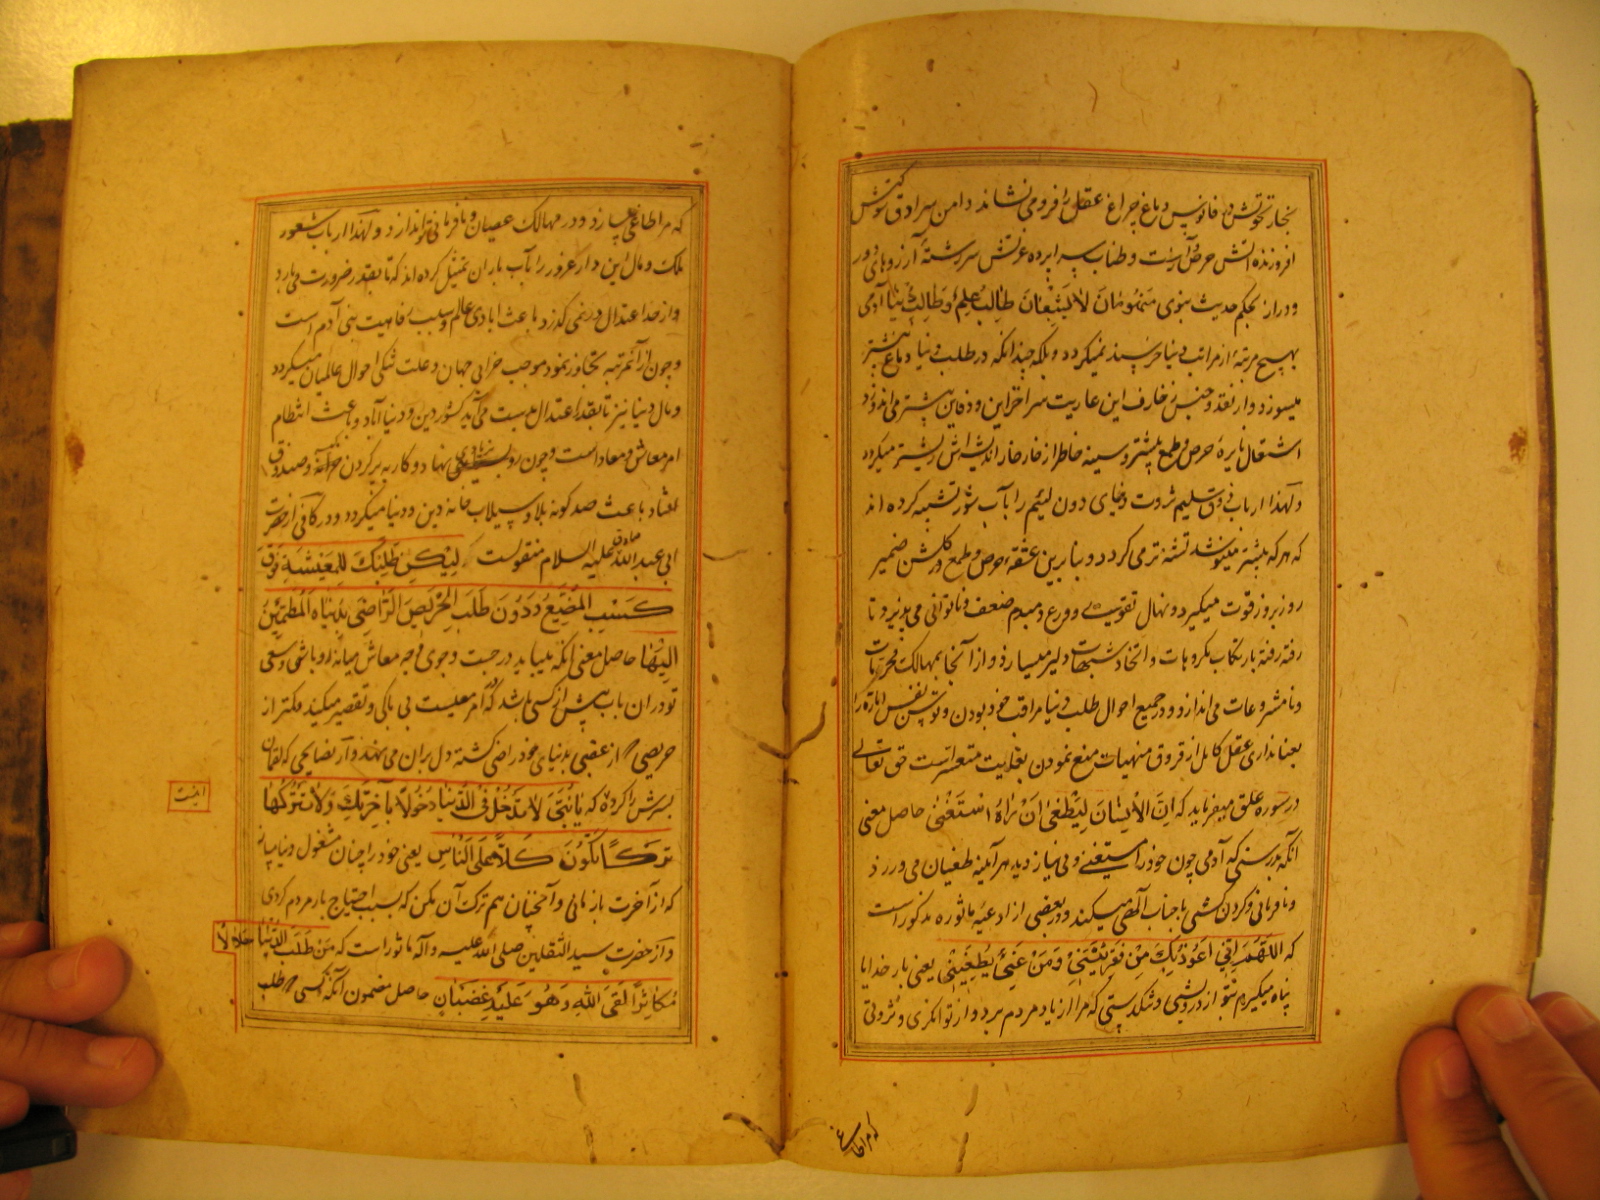 بخار نخوتش در فانوس دماغ چراغ عقل را فرو می نشاند و دامن سرادق کوشش
افروزنده آتش حرص آنست و طناب سراپرده عزتش سررشتهٔ آرزوهای دور
و دراز بحکم حدیث نبوی مَنْهُومَانِ لَا یَشْبَعَانِ طَالِبُ عِلْمٍ وَطَالِبُ دُنْیَا آدمی
بهیچ مرتبه از مراتب دنیا خرسند نمیکردد و بلکه چندانکه در طلب دنیا دماغ بیشتر
میسوزد و از نقد و جنس زخارف این عاریت سرا خزاین و دفاین بیشتر می اندوزد
اشتعال نایرهٔ حرص و طمع بیشتر و سینه خاطر از خار خار اندیشه اش ریشتر میکردد
و لهذا ارباب ذوق سلیم ثروت دنیای دون لئیم را بآب شور تشبیه کرده اند
که هر که بیشتر مینوشد تشنه تر می کردد و بنابرین عشقهٔ حرص و طمع در کلشن ضمیر
روز بروز قوت میکیرد و نهال تقوی و ورع دمبدم ضعف و ناتوانی می پذیرد و تا
رفته رفته بارتکاب مکروهات و اتخاذ شبهات دلیر میسازد و از آنجا بمهالک محرمات
و نامشروعات می اندازد و در جمیع احوال طلب دنیا مراقب خود بودن و توسن نفس اماره را
بعنانداری عقل کامل از قروق منهیات منع نمودن بغایت متعسر است حق تعالی
در سوره علق میفرماید که اِنَّ الْاِنْسَانَ لَیَطْغٰی اَنْ رَاٰهُ اسْتَغْنٰی حاصل معنی
آنکه بدرستی که آدمی چون خود را مستغنی و بی نیاز دید هر آینه طغیان می ورزد
و نافرمانی و کردن کشی با جناب آلهی میکند و در بعضی از ادعیهٔ ماثوره مذکور است
که اَللّٰهُمَّ اِنِّی اَعُوذُ بِکَ مِنْ فَقْرٍ یُنْسِینِی وَمِنْ غِنًی یُطْغِینِی یعنی بار خدایا
پناه میکیرم بتو از درویشی و تنکدستی که مرا از یاد مردم برد و از توانکری و ثروتی
که مرا طاغی
که مرا طاغی سازد و در مهالک عصیان و نافرمانی تو اندازد و لهذا ارباب شعور
ملک و مال این دار غرور را بآب باران تمثیل کرده اند که تا بقدر ضرورت می بارد
و از حد اعتدال در نمی کذرد باعث ابادی عالم و سبب رفاهیت بنی آدم است
و چون از آنمرتبه تجاوز نمود موجب خرابی جهان و علت تنکی احوال عالمیان میکردد
و مال دنیا نیز تا بقدر اعتدال بدست می آید کشور دین و دنیا آباد و باعث انتظام
امر معاش و معاد است و چون رو بزیادتی نهاد و کار به پر کردن خزانه و صندوق
افتاد باعث صد کونه بلا و سیلاب خانهٔ دین و دنیا میکردد و در کافی از حضرت
ابی عبد الله صادق علیه السلام منقولست لِیَکُنْ طَلَبُکَ لِلْمَعِیشَةِ فَوْقَ
کَسْبِ الْمُضَیِّعِ وَدُونَ طَلَبِ الْحَرِیصِ الرَّاضِی بِدُنْیَاهُ الْمُطْمَئِنِّ
اِلَیْهَا حاصل معنی آنکه میباید در جست و جوی وجه معاش میانه رو باشی و سعی
تو در ان باب بیش از کسی باشد که در امر معیشت بی باکی و تقصیر میکند و کمتر از
حریصی که از عقبی بدنیای خود راضی کشته دل بران می نهد و از نصایحی که لقمان
پسرش را کرده که یَا بُنَیَّ لَا تَدْخُلْ فِی الدُّنْیَا دُخُولًا بِآخِرَتِکَ وَلَا تَتْرُکْهَا
تَرْکًا تَکُونُ کَلًّا عَلَی النَّاسِ یعنی خود را چنان مشغول دنیا مساز
که از آخرت باز مانی و آنچنان هم ترک آن مکن که بسبب احتیاج بار مردم کردی
و از حضرت سید الثقلین صلی الله علیه و آله ماثور است که مَنْ طَلَبَ الدُّنْیَا حَلَالًا
مُکَاثِرًا لَقِیَ اللهَ وَهُوَ عَلَیْهِ غَضْبَانُ حاصل مضمون آنکه کسی که طلب
اینست